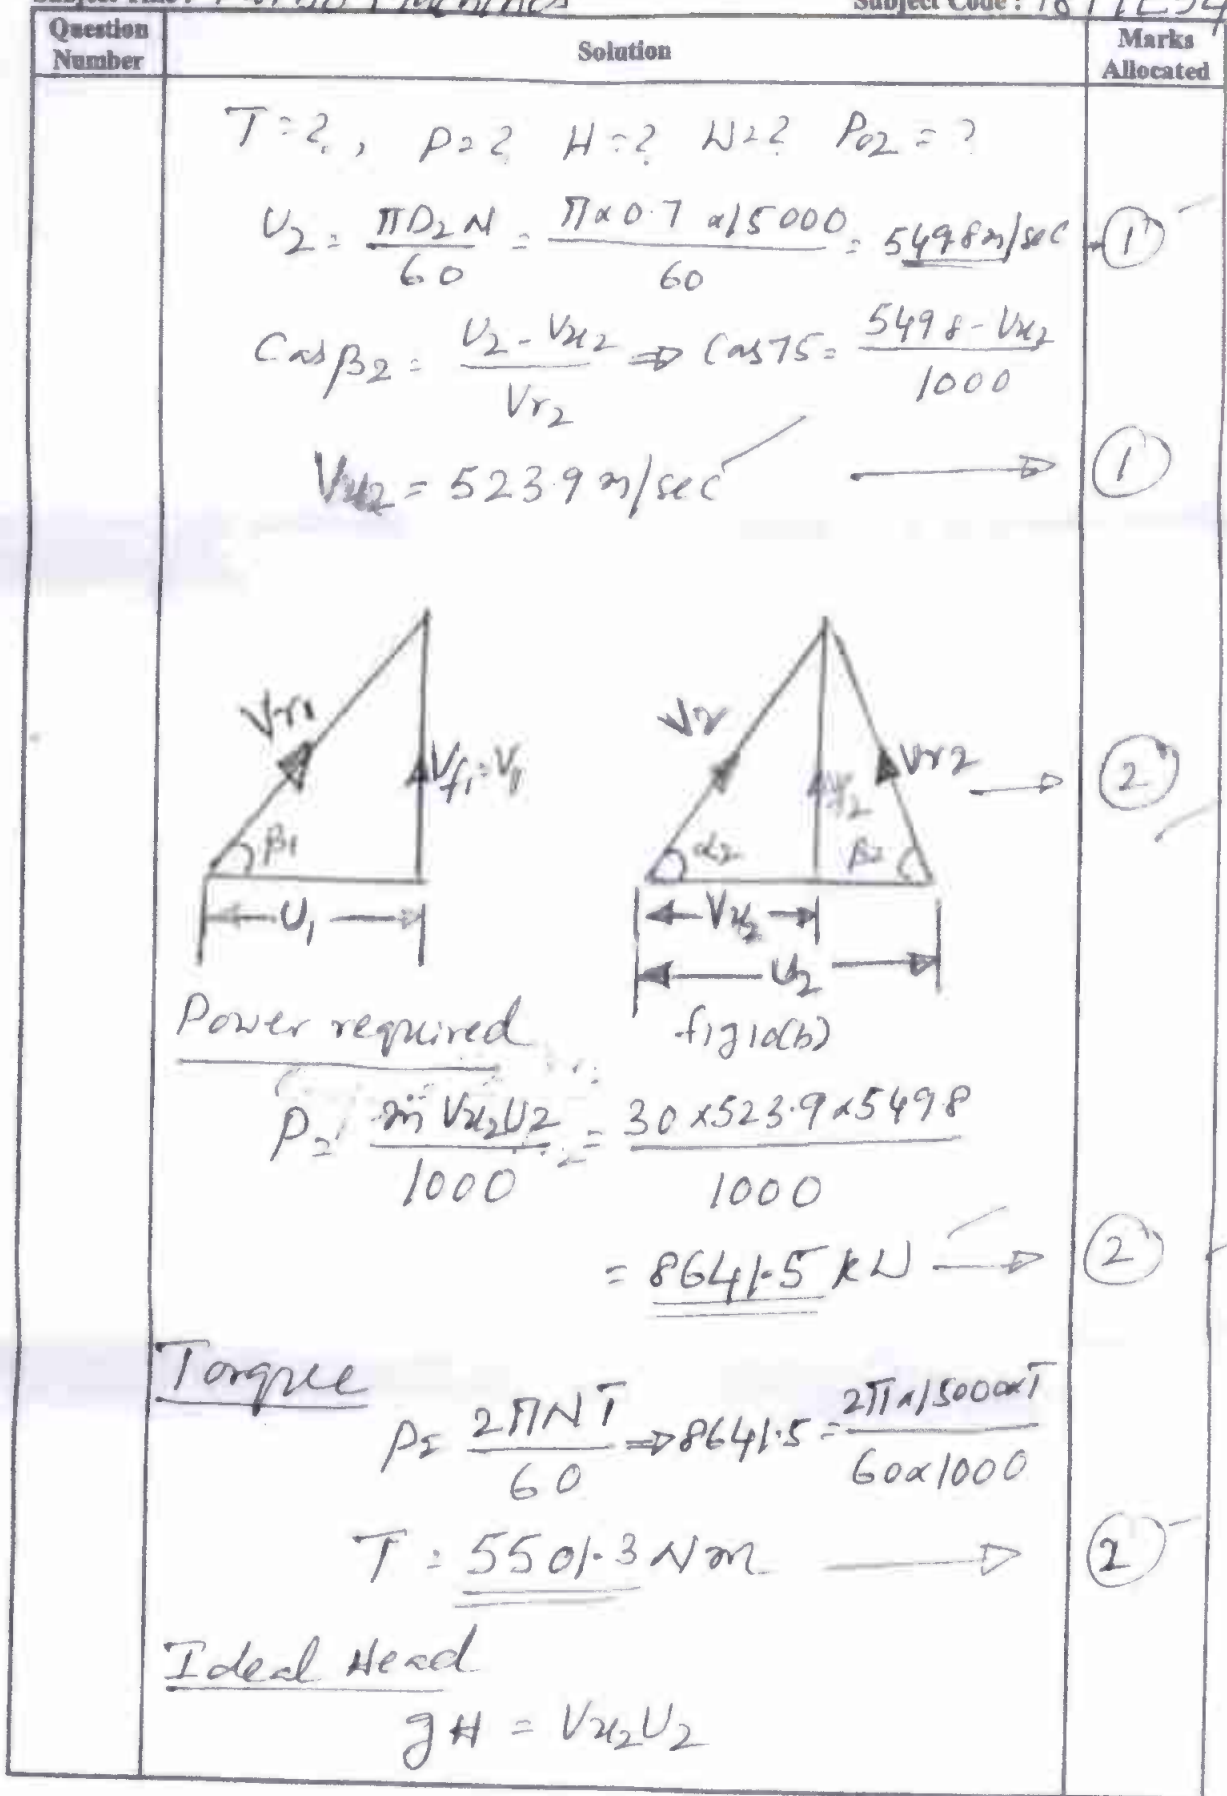 Subject Code : 18ME54
Question Number
Solution
Marks Allocated
T = ?, P = ? H = ? W = ? P02 = ?
U2 = πD2N / 60 = π x 0.7 x 15000 / 60 = 549.8 m/sec → 1
Cos β2 = U2 - Vu2 / Vr2 ⇒ Cos 75 = 549.8 - Vu2 / 100
Vu2 = 523.9 m/sec → 1
Vr1
Vf1 = V1
β1
U1
V2
Vr2 → 2
Vf2
α2
β2
Vu2
U2
Power required
fig 10(b)
P = ṁ Vu2 U2 / 1000 = 30 x 523.9 x 549.8 / 1000
= 8641.5 kW → 2
Torque
P = 2πNT / 60 ⇒ 8641.5 = 2π x 15000 x T / 60 x 1000
T = 5501.3 Nm → 2
Ideal Head
gH = Vu2 U2